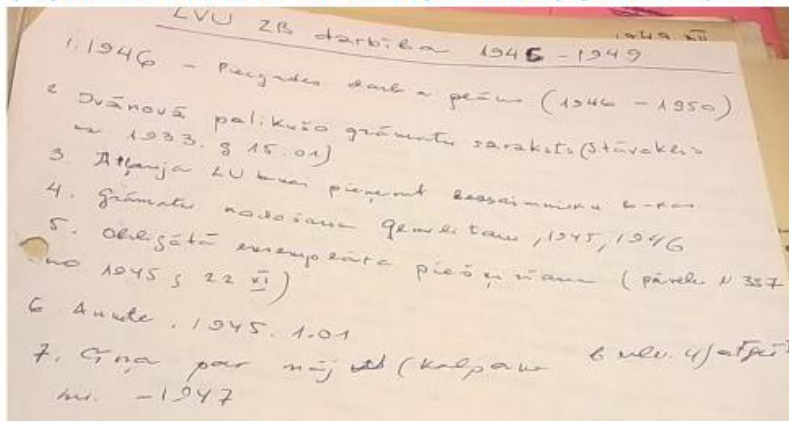 LVU ZB darbība 1945 - 1949
1949 XII
1. 1946 - Piecgades darba plāns (1946 - 1950)
2 Ivānovā palikušo grāmatu saraksts (Stāvoklis
uz 1933. g 15.01)
3 Atļauja LU pieņemt bezsaimnieku b-kas
4. Grāmatu nodošana , 1945, 1946
5. Obligātā eksemplāra piešķiršana (pavēle N 337
no 1945 g 22 XI)
6. Ankete . 1945. 1.01
7. Cīņa par māj (Kalpaka bulv. 4)
- 1947